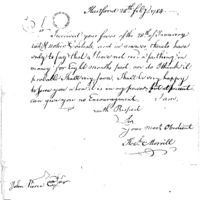 Hartford 28th Feby 1784
Sir
I received your favor of the 20th of January
last & in answer thereto have
only to say that I have not rec'd a farthing in
money for Eight months past nor do I think it
probable I shall very soon. I shall be very happy
to serve you when it is in my power but at present
can give you no Encouragement. I am
with Respect
Sir
Your most Obedient
Merrill
John Pierce Esqr